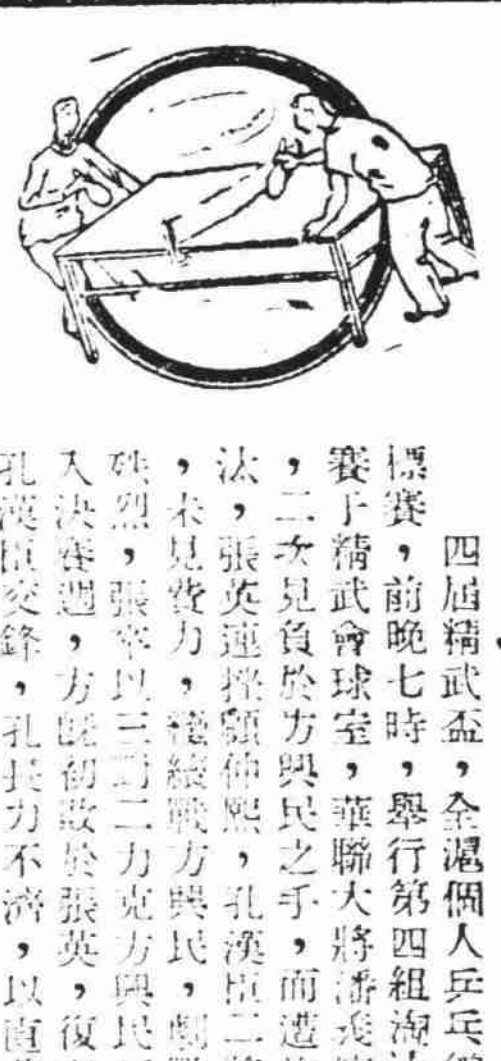 四屆精武盃，全滬個人乒乓
標賽，前晚七時，舉行第四組淘
賽于精武會球室，華聯大將潘
，二次見負於方興民之手，而遭
汰，張英連挫顧仲熙，孔漢臣二
，未見費力，繼續戰方興民，劇
烈，張卒以三對二力克方興民
入決賽週，方旣初敗於張英，復
孔漢臣交鋒，孔長力不濟，以直